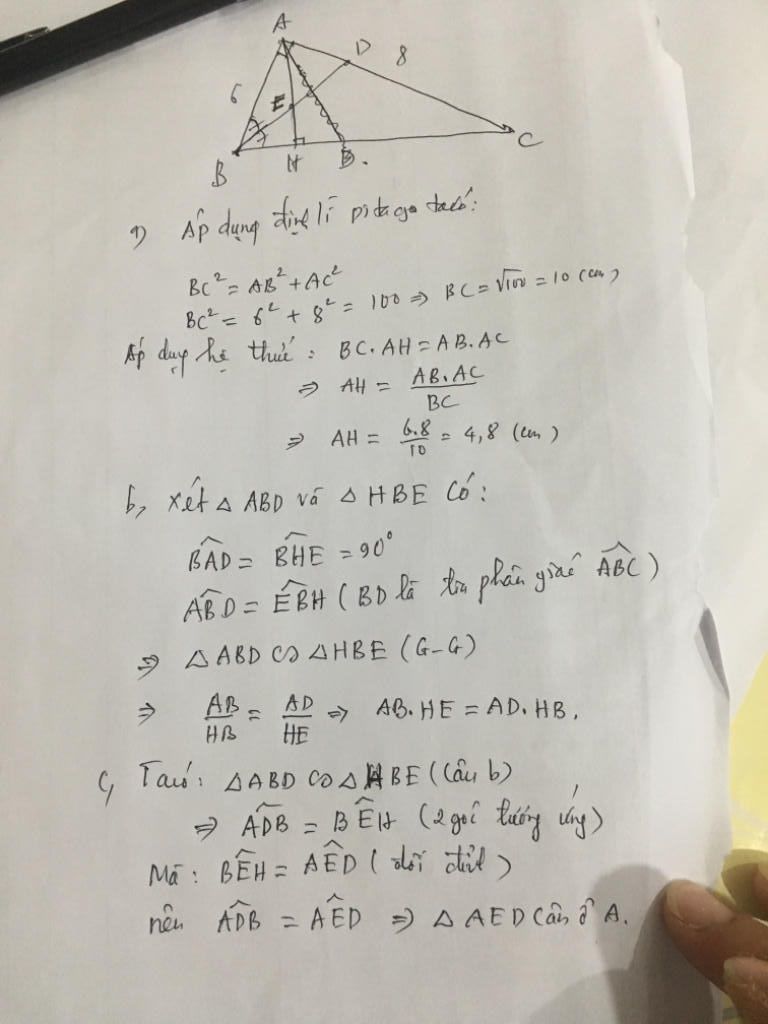 A
D
8
6
E
B
H
C
a) Áp dụng định lí pitago ta có:
BC² = AB² + AC²
BC² = 6² + 8² = 100 ⇒ BC = √100 = 10 (cm)
Áp dụng hệ thức: BC.AH = AB.AC
⇒ AH = AB.AC / BC
⇒ AH = 6.8 / 10 = 4,8 (cm)
b, Xét △ ABD và △ HBE Có:
BAD̂ = BHÊ = 90°
ABD̂ = EBĤ (BD là tia phân giác ABĈ)
⇒ △ABD ∽ △HBE (G-G)
⇒ AB/HB = AD/HE ⇒ AB.HE = AD.HB.
c, Ta có: △ABD ∽ △HBE (Câu b)
⇒ ADB̂ = BÊH (2 góc tương ứng)
Mà: BÊH = AÊD (đối đỉnh)
nên ADB̂ = AÊD ⇒ △ AED Cân ở A.